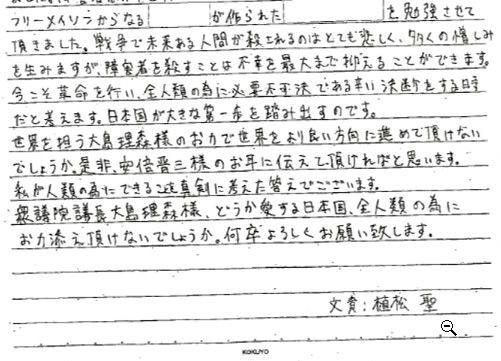 フリーメイソンからなる が作られた を勉強させて
頂きました。戦争で未来ある人間が殺されるのはとても悲しく、多くの憎しみ
を生みますが、障害者を殺すことは不幸を最大まで抑えることができます。
今こそ革命を行い、全人類の為に必要不可欠である辛い決断をする時
だと考えます。日本国が大きな第一歩を踏み出すのです。
世界を担う大島理森様のお力で世界をより良い方向に進めて頂けない
でしょうか。是非、安倍晋三様のお耳に伝えて頂ければと思います。
私が人類の為にできることを真剣に考えた答えでございます。
衆議院議長大島理森様、どうか愛する日本国、全人類の為に
お力添え頂けないでしょうか。何卒よろしくお願い致します。
文責:植松 聖
KOKUYO